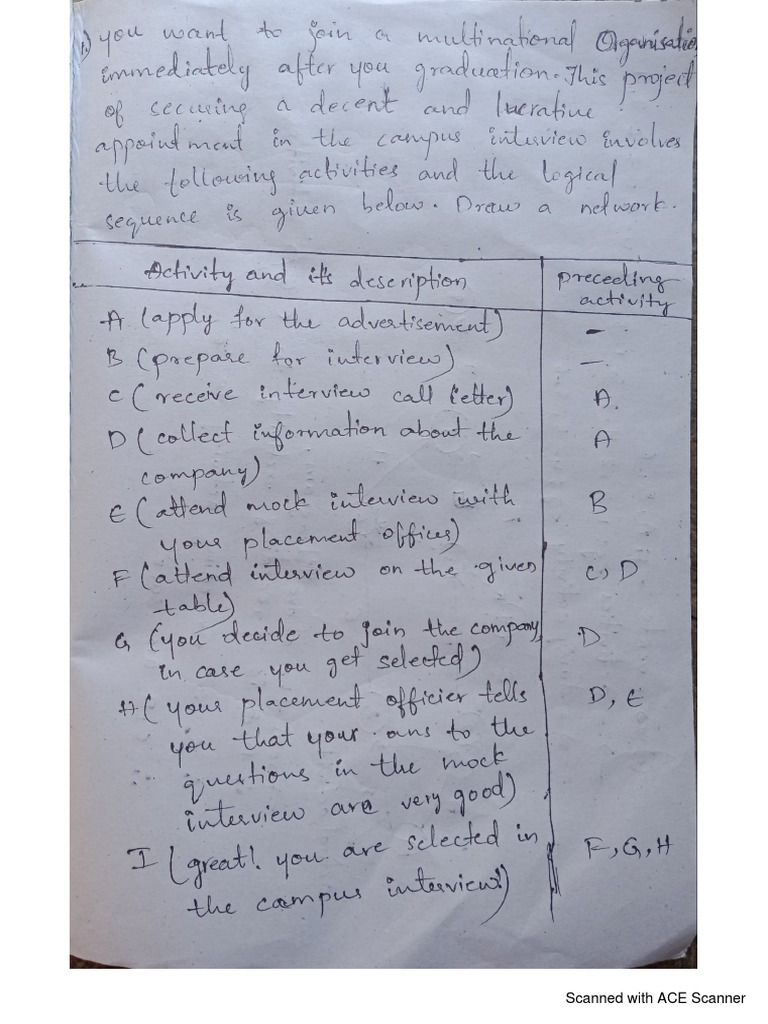 1.) you want to join a multinational Organisatio
immediately after you graduation. This project
of securing a decent and lucrative
appointment in the campus interview involves
the following activities and the logical
sequence is given below. Draw a network.
Activity and it's description preceding activity
A (apply for the advertisement) -
B (prepare for interview) -
C (receive interview call letter) A.
D (collect information about the A
company)
E (attend mock interview with B
your placement officer)
F (attend interview on the given C, D
table)
G (you decide to join the company D
in case you get selected)
H (your placement officier tells D, E
you that your ans to the
questions in the mock
interview are very good)
I (great! you are selected in F, G, H
the campus interview!)
Scanned with ACE Scanner